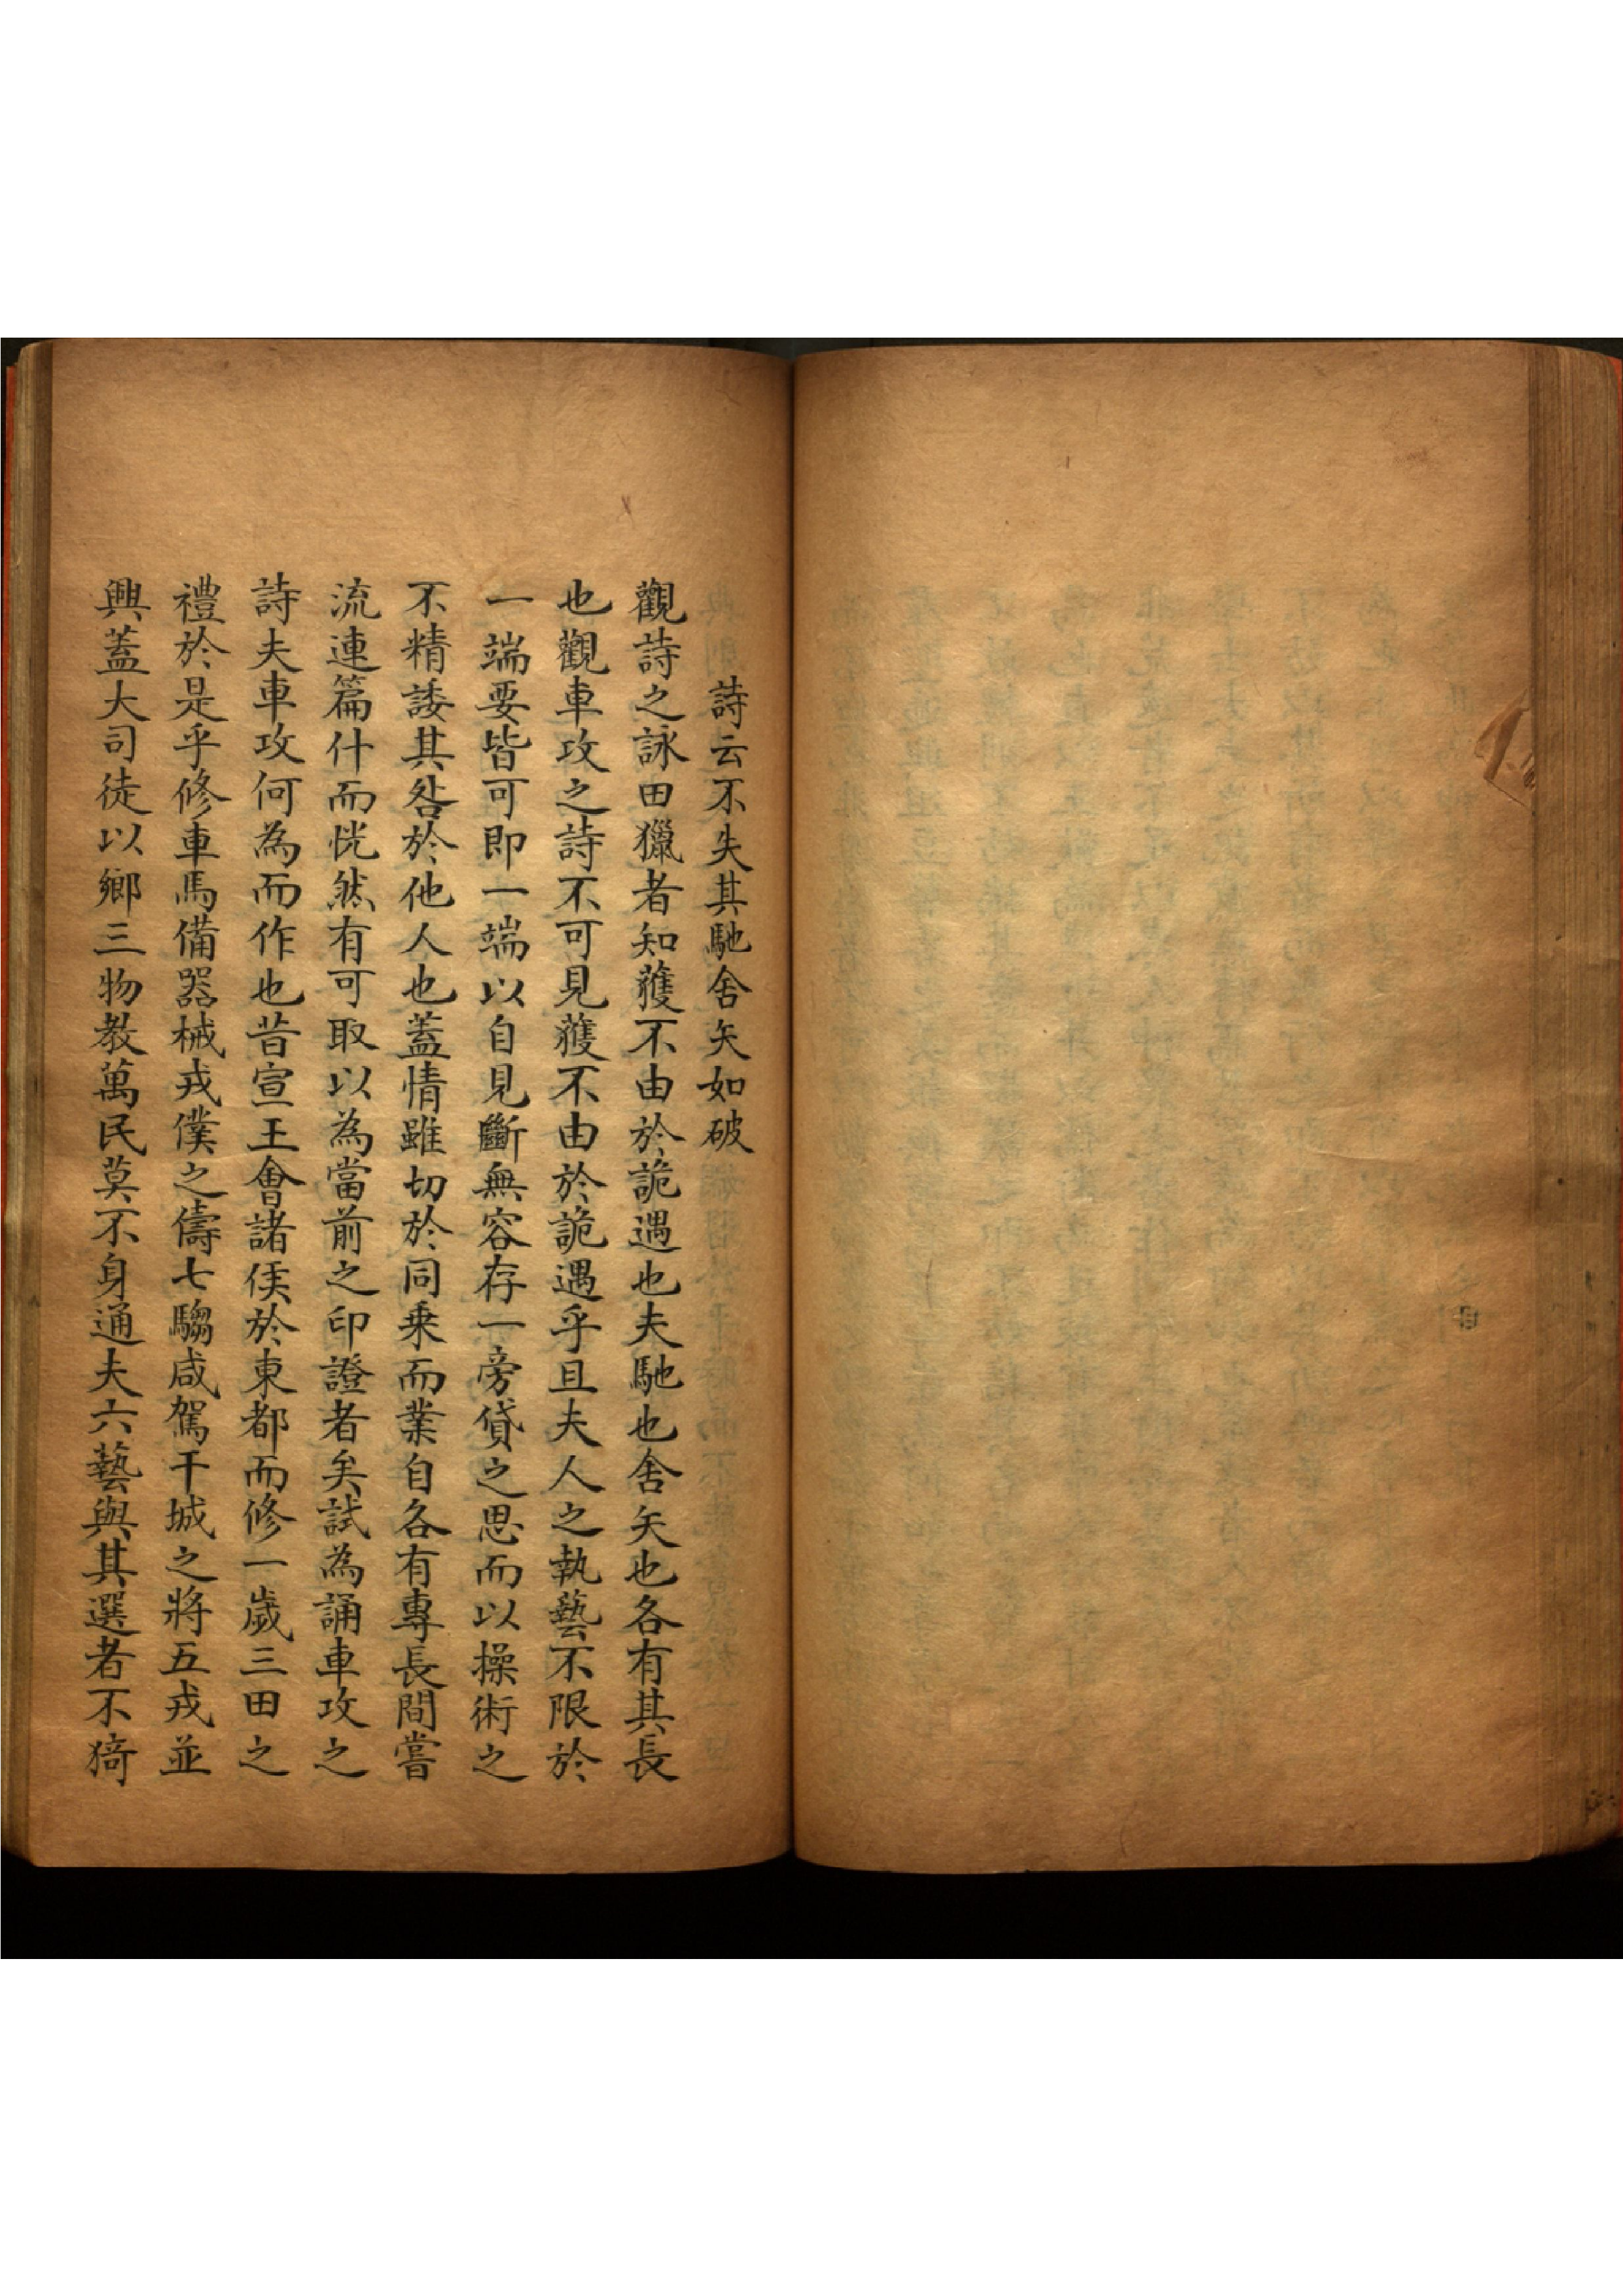 詩云不失其馳舍矢如破
觀詩之詠田獵者知獲不由於詭遇也夫馳也舍矢也各有其長
也觀車攻之詩不可見獲不由於詭遇乎且夫人之執藝不限於
一端要皆可即一端以自見斷無容存一旁貸之思而以操術之
不精諉其咎於他人也蓋情雖切於同乗而業自各有專長間嘗
流連篇什而恍然有可取以為當前之印證者矣試為誦車攻之
詩夫車攻何為而作也昔宣王會諸侯於東都而修一歲三田之
禮於是乎修車馬備器械戎僕之儔七騶咸駕干城之將五戎並
興蓋大司徒以鄉三物教萬民莫不身通夫六藝與其選者不猗